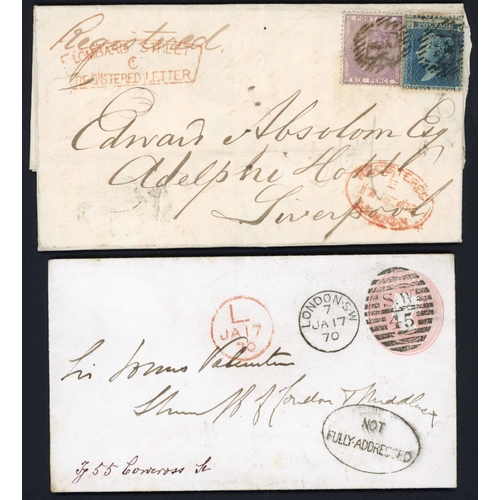 Registered
LOMBARD STREET
C
REGISTERED LETTER
POSTAGE
SIX PENCE
POSTAGE
Edward Absolom Esq
Adelphi Hotel
Liverpool
REGISTERED
LONDON
L
JA 17
70
LONDON·S.W
7
JA 17
70
S.W
45
Sir
of London & Middlesex
NOT
FULLY-ADDRESSED
Try 55 Cowcross St